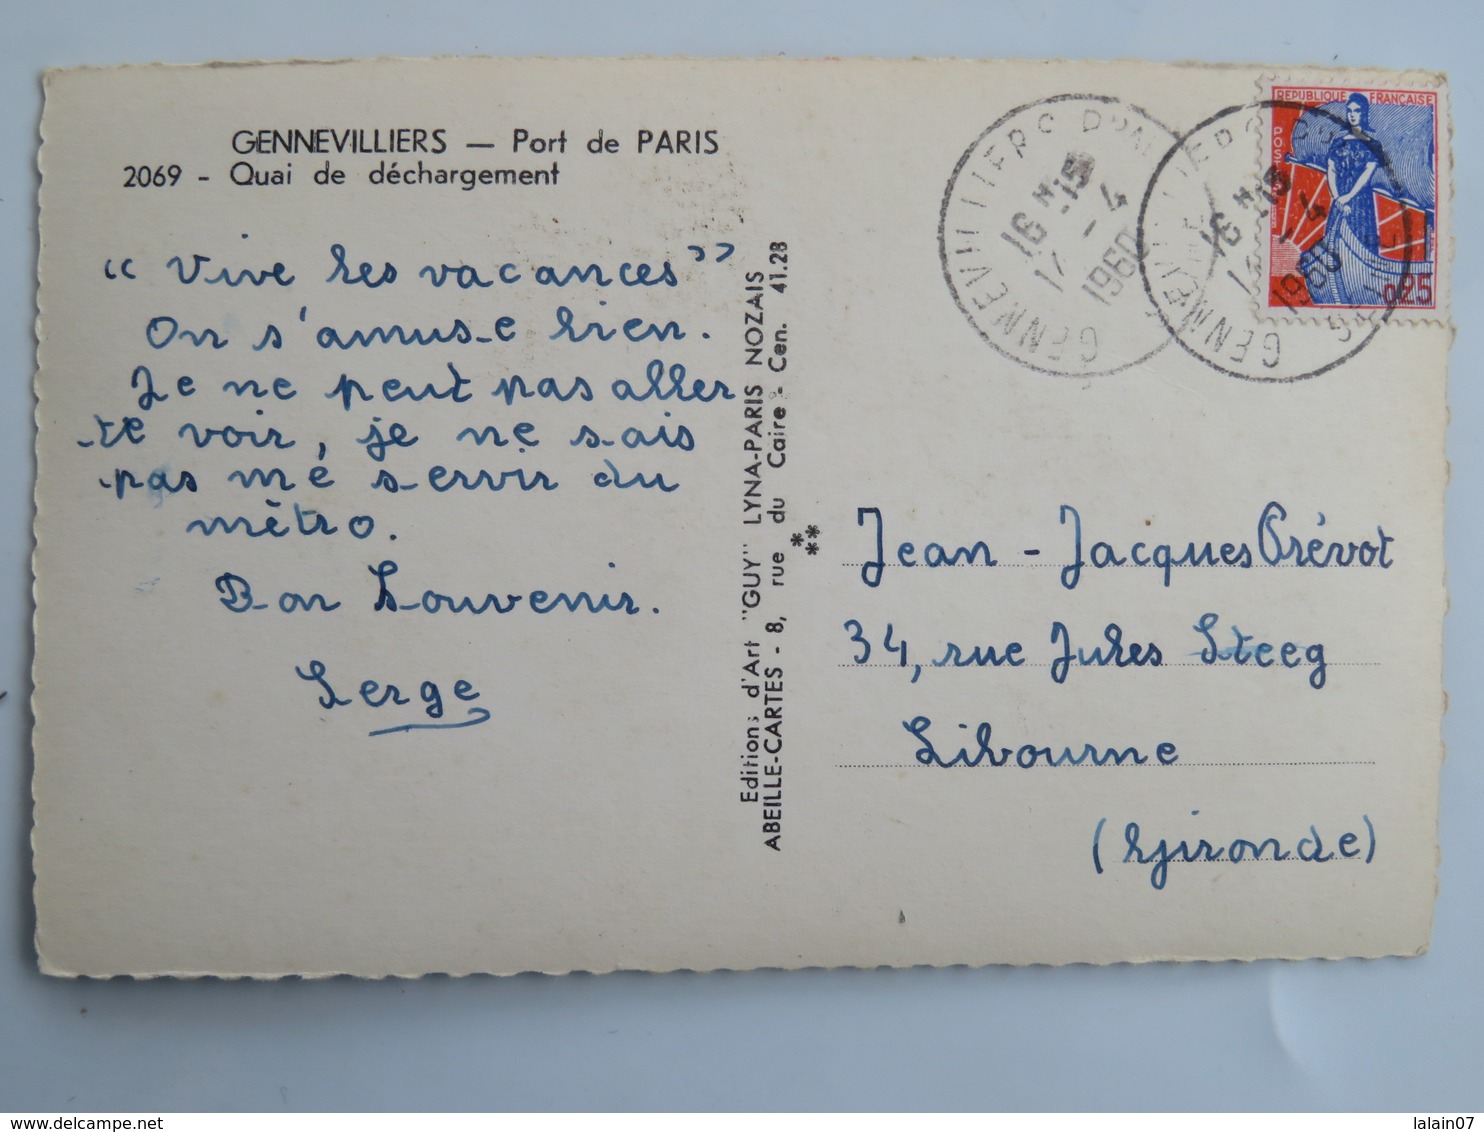 GENNEVILLIERS — Port de PARIS
2069 - Quai de déchargement
“ Vive les vacances ”
On s'amuse bien.
Je ne peut pas aller
te voir, je ne sais
pas me servir du
mêtro.
Bon Souvenir.
Serge
Editions d'Art "GUY" LYNA-PARIS NOZAIS
ABEILLE-CARTES - 8, rue du Caire - Cen. 41.28
GENNEVILLIERS
16 H 15
1960
GENNEVILLIERS
16 H 15
1960
REPUBLIQUE FRANÇAISE
POSTES
0,25
Jean - Jacques Prévot
34, rue Jules Steeg
Libourne
(Gironde)
lalain07